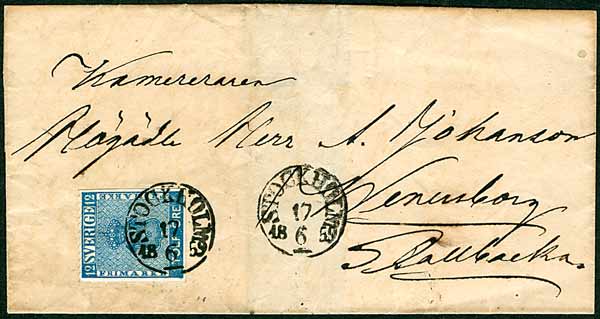 Kamereraren
Högädle Herr A. Johanson
Wenersborg
Stallbacka.
12 SVERIGE 12
FRIMÄRKE
STOCKHOLM
17
6
18 5
STOCKHOLM
17
6
18 5